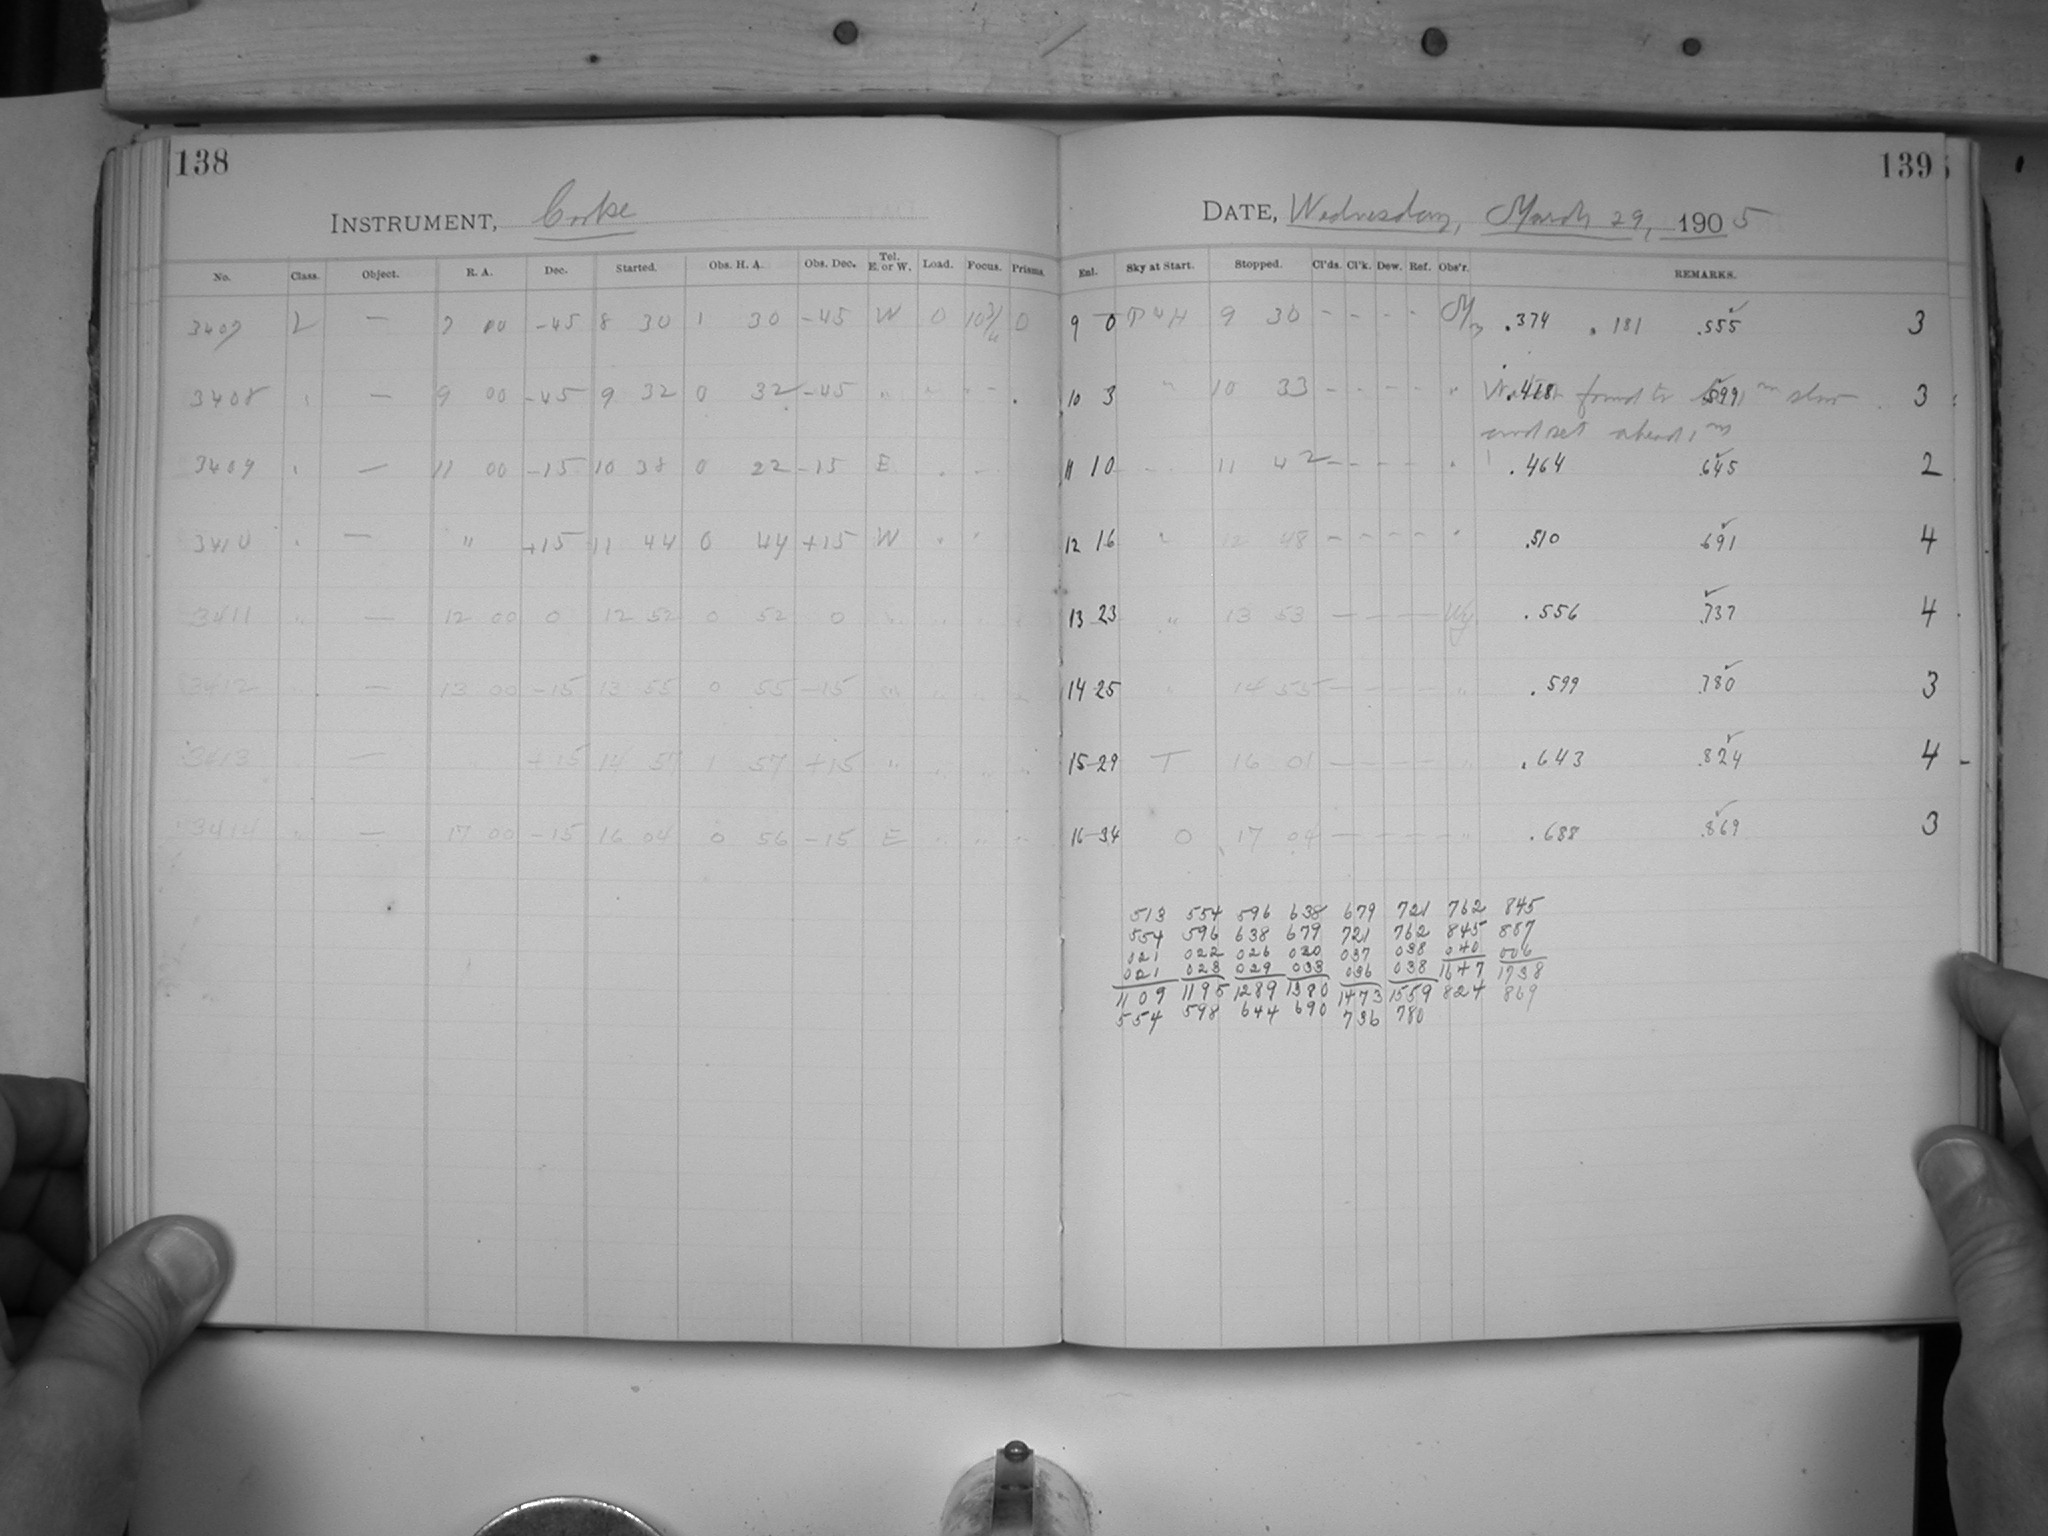 138
INSTRUMENT, Cooke
No. Class. Object. R. A. Dec. Started. Obs. H. A. Obs. Dec. Tel. E. or W. Load. Focus. Prisms.
3407 L — 7 00 -45 8 30 1 30 -45 W 0 10 3/4 0
3408 — 9 00 -45 9 32 0 32 -45 "
3409 — 11 00 -15 10 38 0 22 -15 E
3410 — " +15 11 44 0 44 +15 W " "
3411 " — 12 00 0 12 52 0 52 0
3412 " — 13 00 -15 13 55 0 55 -15 "
3413 — +15 14 57 1 57 +15 " " " "
3414 " — 17 00 -15 16 04 0 56 -15 E " " "
139
DATE, Wednesday, March 29, 1905
Enl. Sky at Start. Stopped. Cl'ds. Cl'k. Dew. Ref. Obs'r. REMARKS.
9 0 9 30 - - - - .374 .181 .555 3
10 3 " 10 33 - - - - " .418 found to .599 m slow 3
and set ahead 1m
11 10 11 42 - - - - .464 .645 2
12 16 " 12 48 - - - - " .510 .691 4
13 23 " 13 53 — — — — .556 .737 4
14 25 " 14 55 — — — — " .599 .780 3
15 29 T 16 01 — — — — " .643 .824 4
16 34 0 17 04 — — — — " .688 .869 3
513 554 596 638 679 721 762 845
554 596 638 679 721 762 845 887
021 022 026 030 037 038 040 006
021 023 029 033 036 038 1647 1738
1109 1195 1289 1380 1473 1559 824 869
554 598 644 690 736 780